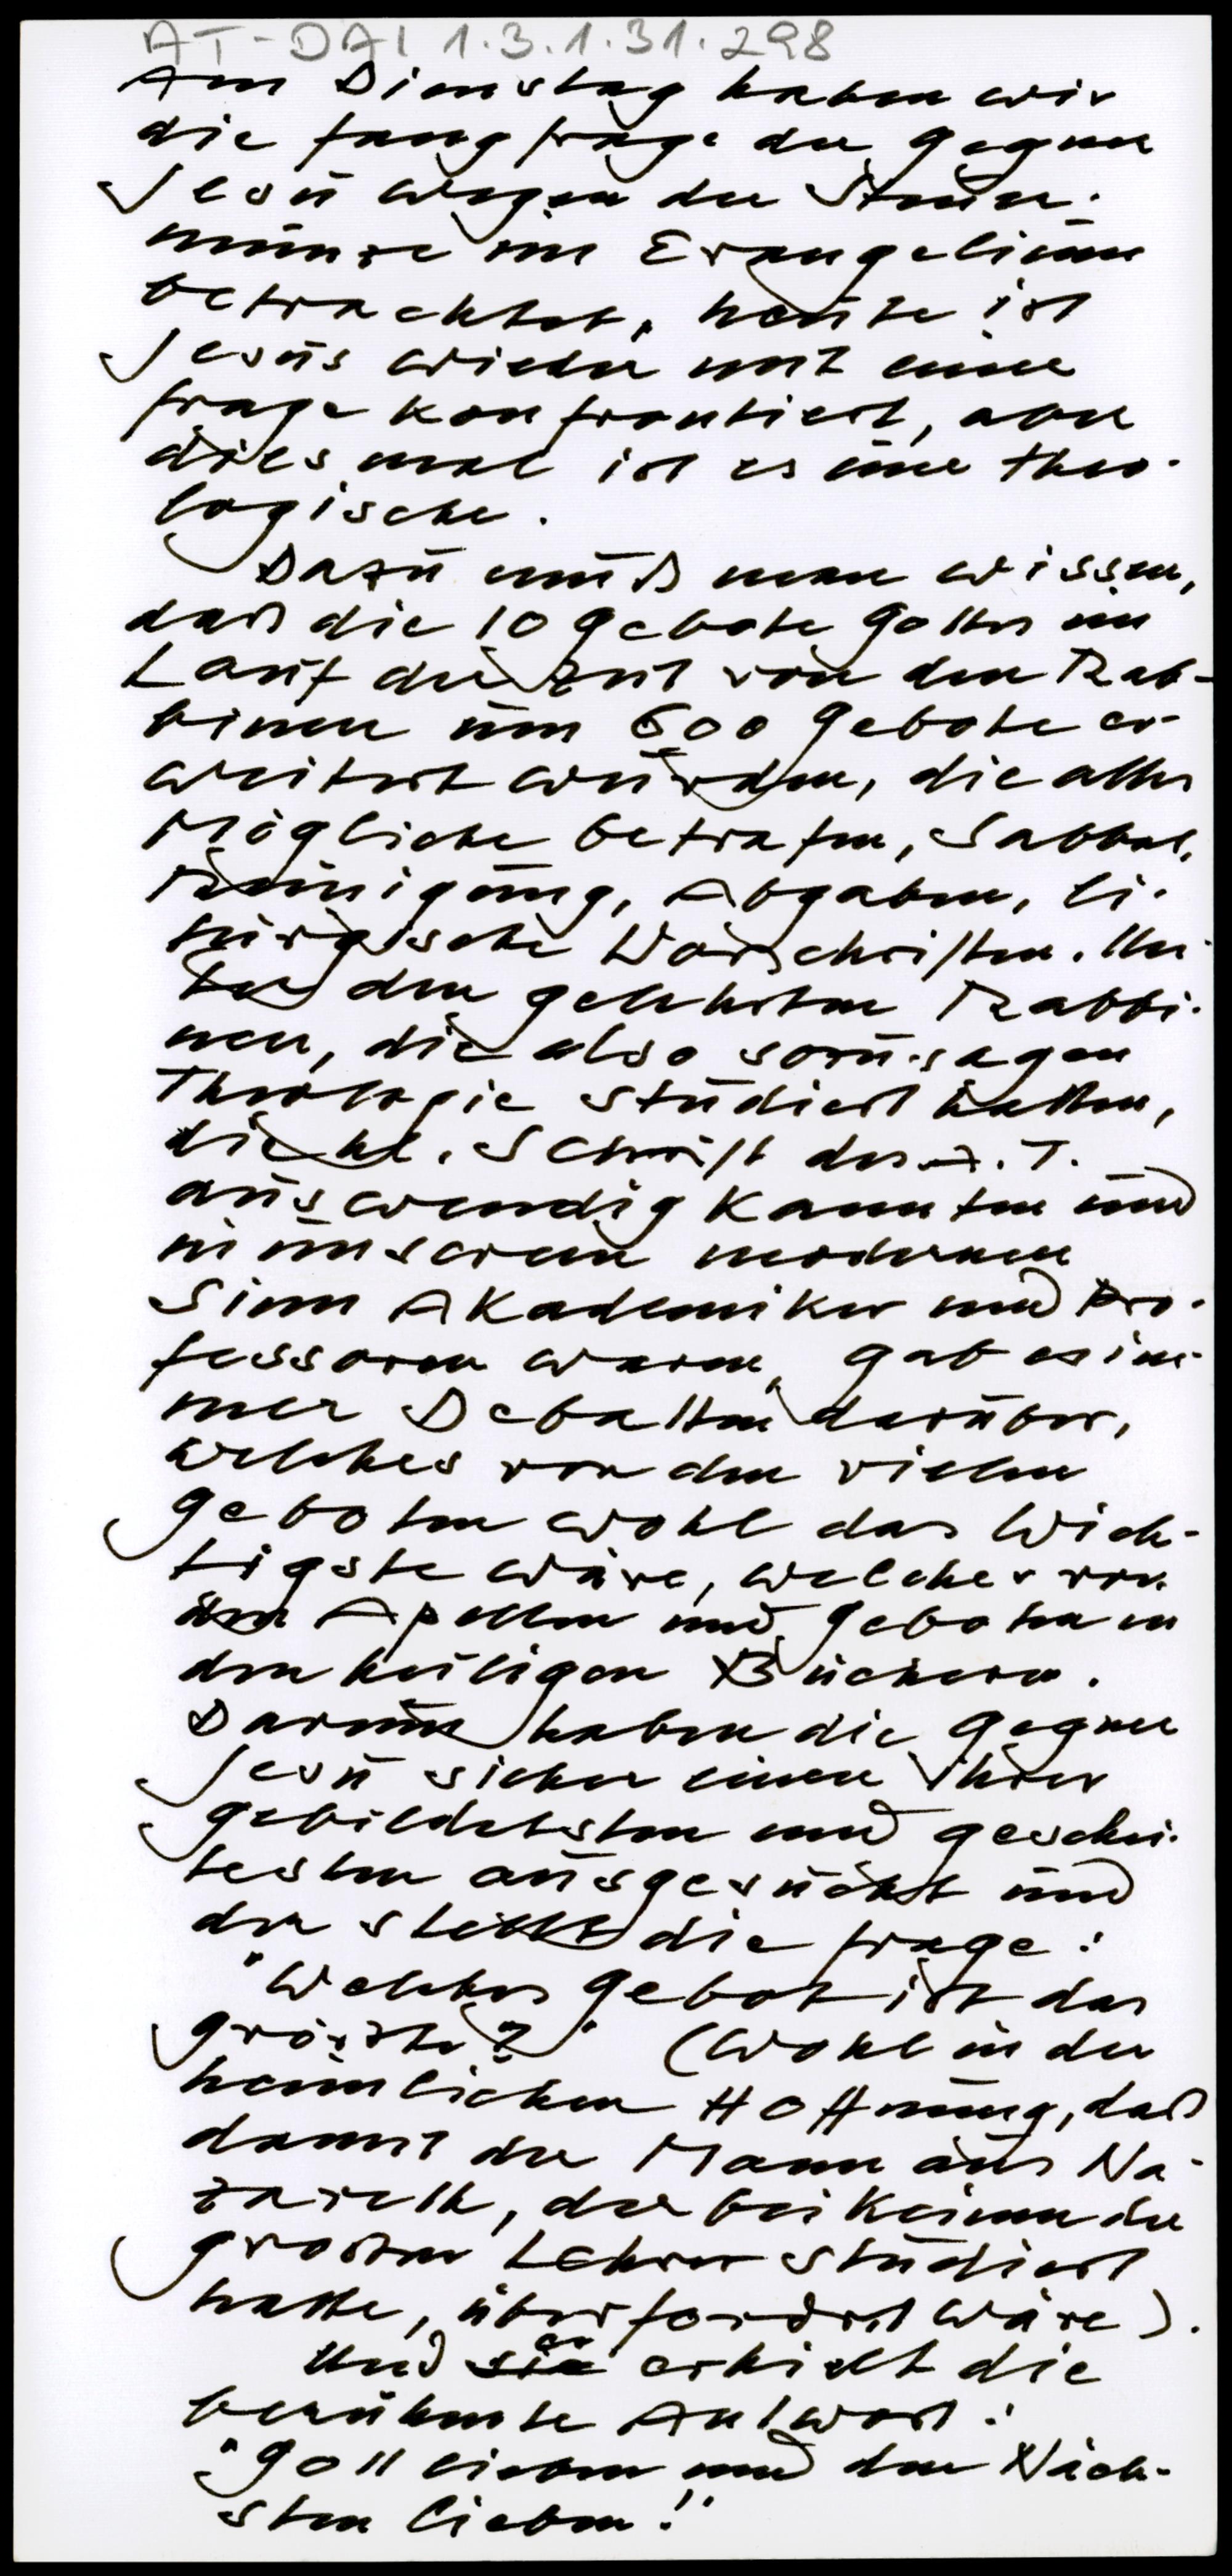 AT-DAI 1.3.1.31.298
Am Dienstag haben wir
die Fangfrage der Gegner
Jesu wegen der Steuer-
münze im Evangelium
betrachtet, heute ist
Jesus wieder mit einer
Frage konfrontiert, aber
diesmal ist es eine theo-
logische.
Dazu muß man wissen,
daß die 10 Gebote Gottes im
Lauf der Zeit von den Rab-
binen um 600 Gebote er-
weitert wurden, die alles
Mögliche betrafen, Sabbat,
Reinigung, Abgaben, li-
turgische Vorschriften. Un-
ter den gelehrten Rabbi-
nen, die also sozusagen
Theologie studiert hatten,
die hl. Schrift des A.T.
auswendig kannten und
in unserem modernen
Sinn Akademiker und Pro-
fessoren waren, gab es im-
mer Debatten darüber,
welches von den vielen
Geboten wohl das Wich-
tigste wäre, welches von
den Apellen und Geboten in
den heiligen Büchern.
Darum haben die Gegner
Jesu sicher einen ihrer
gebildetsten und geschei-
testen ausgesucht und
der stellt die Frage:
"Welches Gebot ist das
größte?" (Wohl in der
heimlichen Hoffnung, daß
damit der Mann aus Na-
zareth, der bei keinem der
großen Lehrer studiert
hatte, überfordert wäre).
Und sie er erhielt die
berühmte Antwort:
"Gott lieben und den Näch-
sten lieben!"